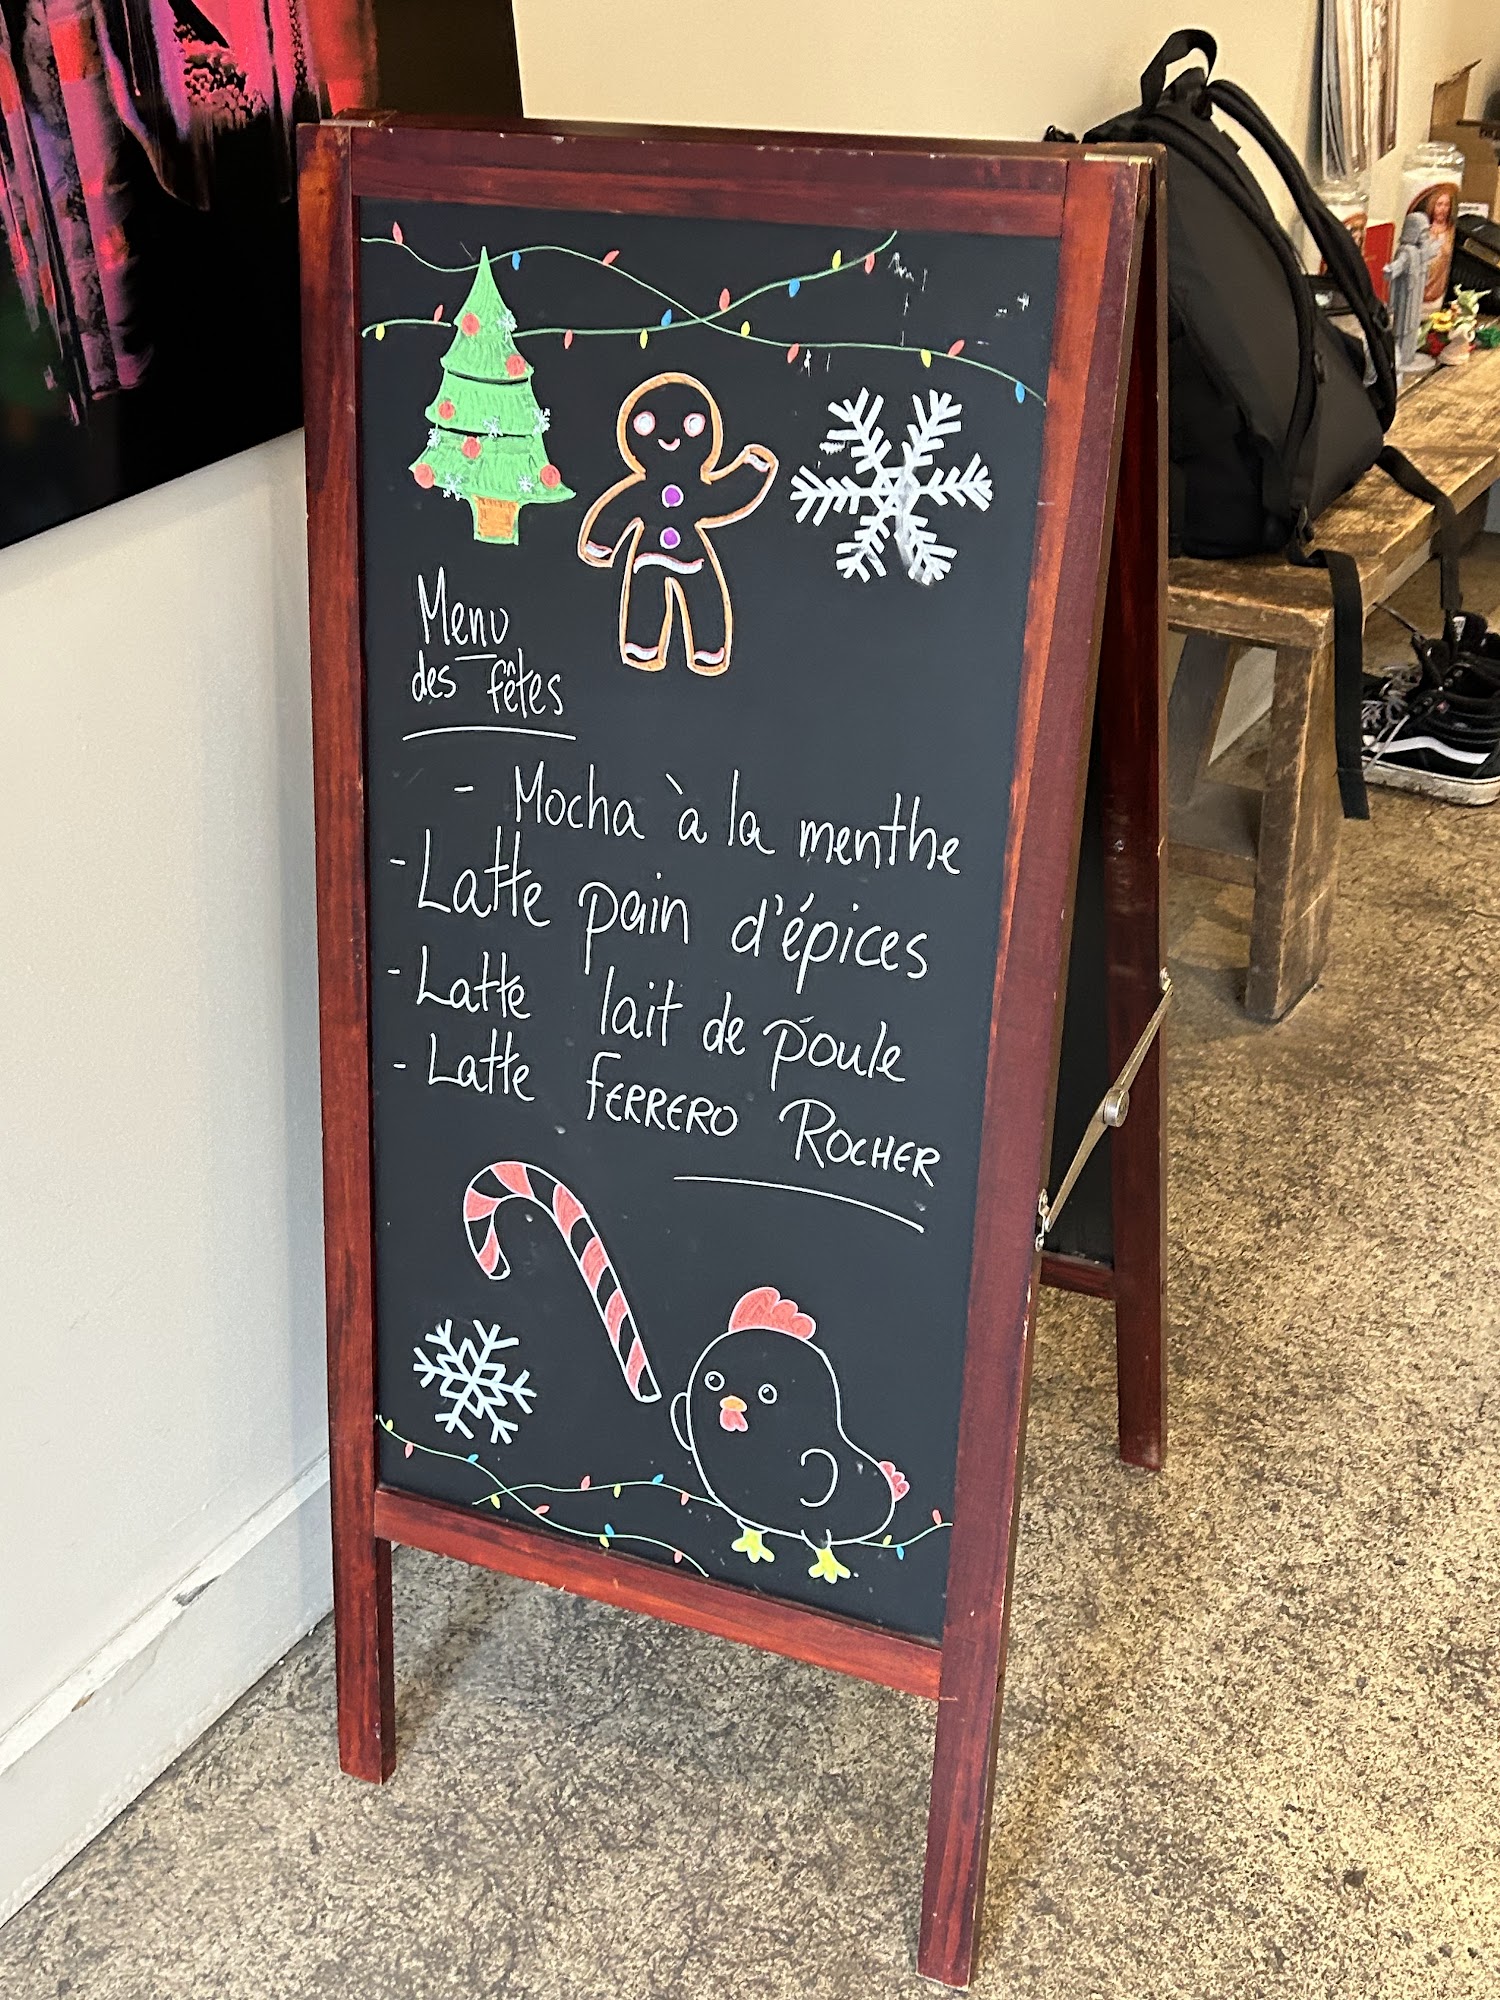 Menu
des fêtes
- Mocha à la menthe
- Latte pain d'épices
- Latte lait de poule
- Latte FERRERO ROCHER